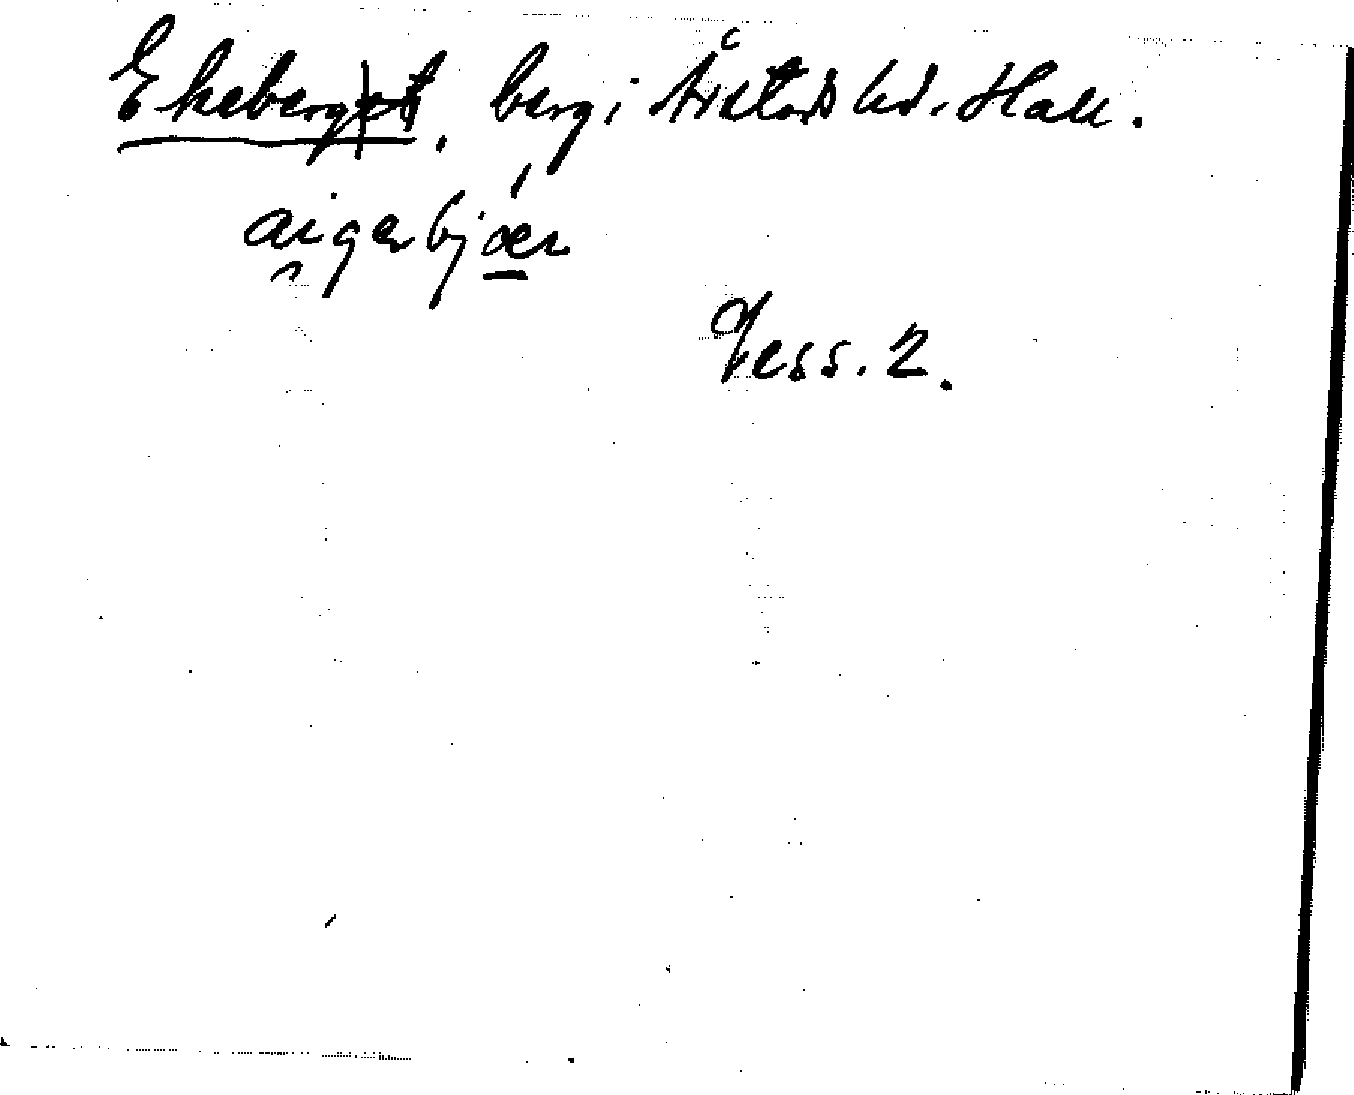 Ekeberg|et, berg i Årstads hd. Hall.
aigerbjær
Gess. 2.